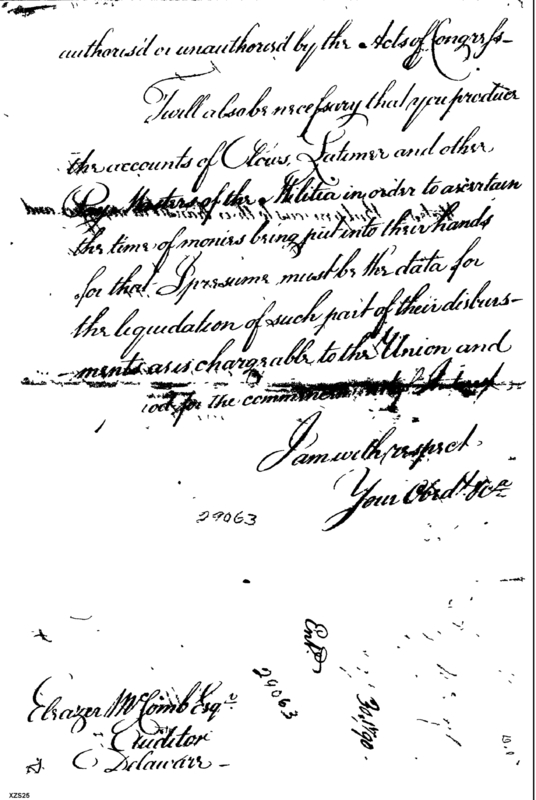 authoris'd or unauthoris'd by the Acts of Congress -
'Twill also be necessary that you produce
the accounts of Clows, Latimer and other
Pay Masters of the Militia in order to ascertain
the time of monies being put into their hands
for that I presume must be the data for
the liquidation of such part of their disburs-
ments as is chargeable to the Union and
for the
I am with respect
Your Obedt. &ca
29063
Entd
29063
Eleazer McComb Esqr.
Auditor
Delaware -
XZS25